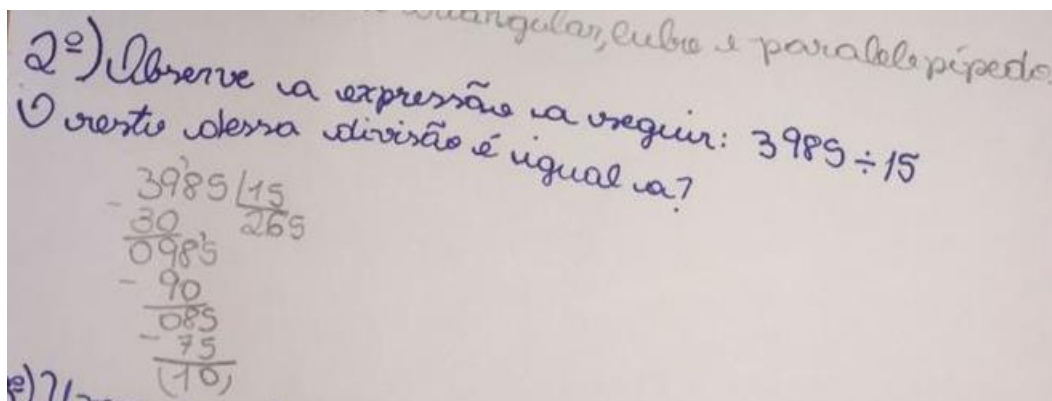 triangular, cubo e paralelepípedo.
2º) Observe a expressão a seguir: 3985 ÷ 15
O resto dessa divisão é igual a?
3985 | 15
- 30 265
0985
- 90
085
- 75
(10)